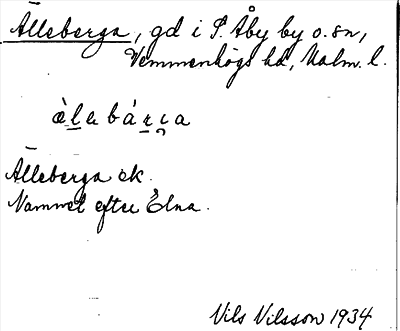 Älleberga, gd i S. Åby by o. sn,
Vemmenhögs hd, Malm. l.
Älleberga ek.
Namnet efter Elna.
Nils Nilsson 1934